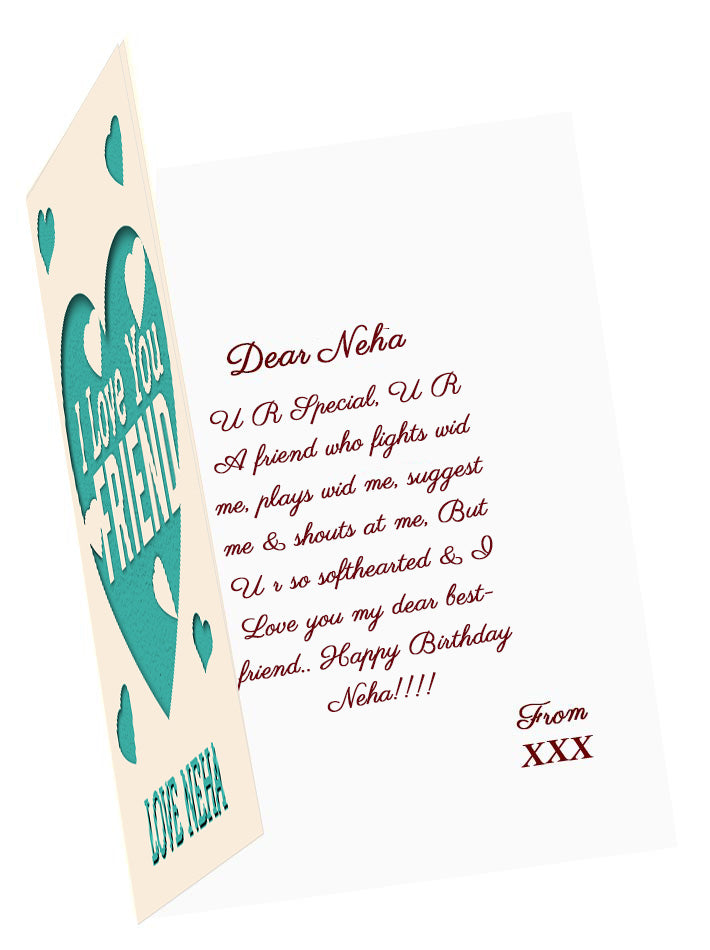 I Love You
FRIEND
LOVE NEHA
Dear Neha
U R Special, U R
A friend who fights wid
me, plays wid me, suggest
me & shouts at me, But
U r so softhearted & I
Love you my dear best-
friend.. Happy Birthday
Neha!!!!
From
XXX